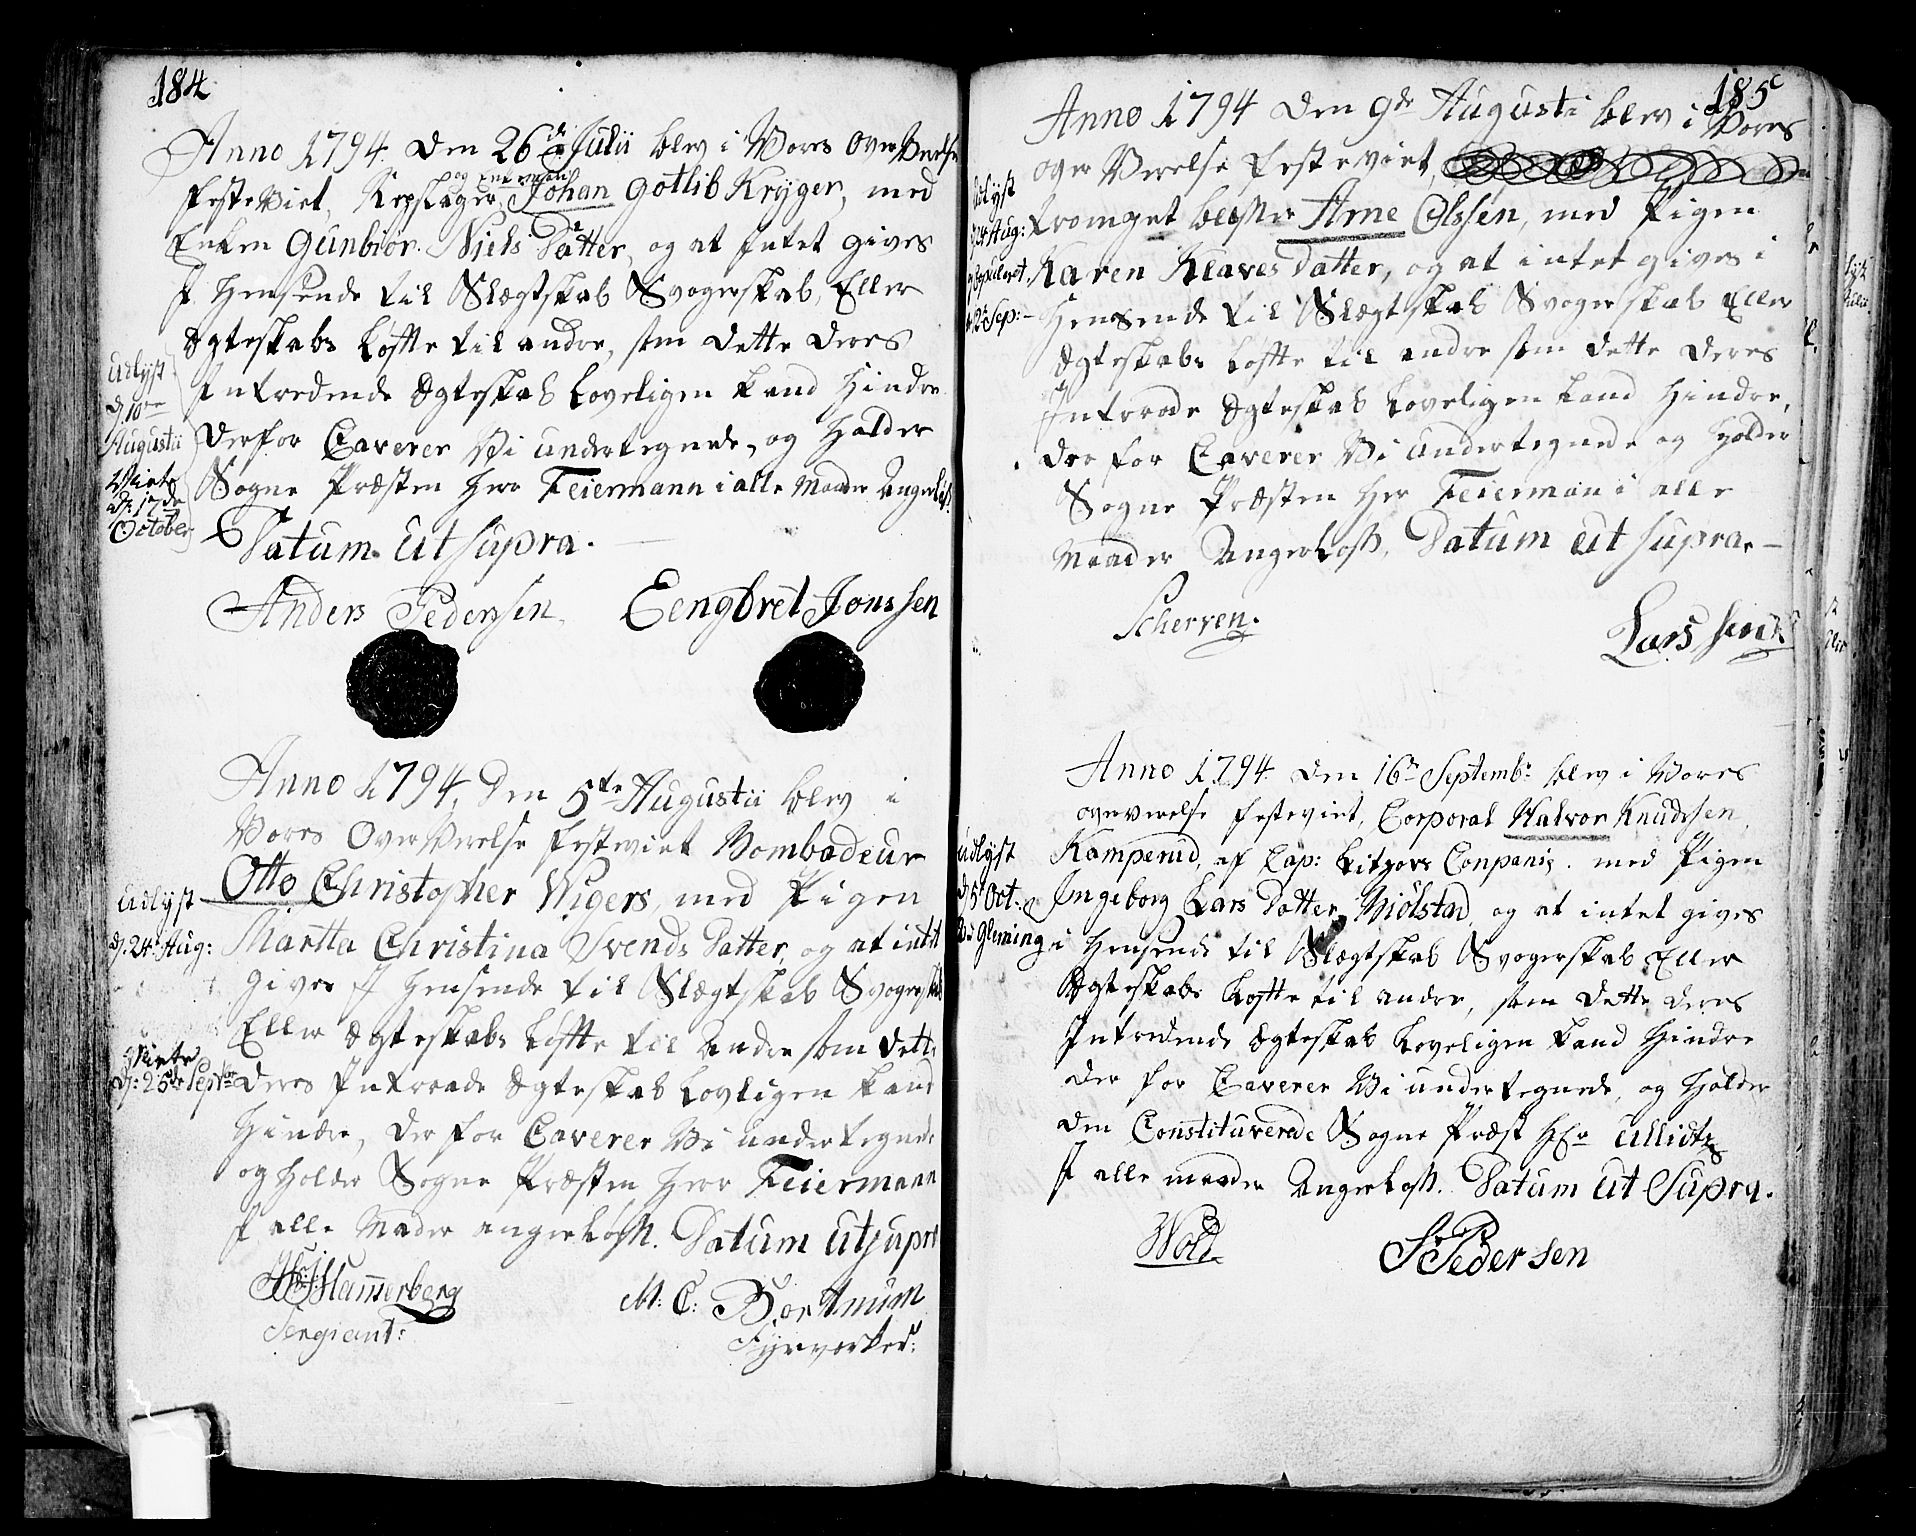 184
Anno 1794. Den 26de Julii blev i Vores overværelse
og Enkeman
festeviet, Repslager Johan Gotlib Kryger, med
Enken Gunbiör Niels Datter, og at Intet gives
I Hensende til Slægtskab Svogerskab, Eller
Ægteskabs Løfte til andre, som dette deres
Intredende Ægteskab Loveligen kand hindre
derfor Caverer Vi undertegnede, og holder
Sogne Præsten Herr Feiermann i alle Maader Angerløs.
Datum Ut supra.
Udlyst
d. 10de
Augustii
Viete
D: 17de
October
Anders Pedersen. Eengbret Jonssen
Anno 1794, Den 5te Augustii blev i
Vores Overværelse festeviet Bombadeur
Otto Christopher Wigers, med Pigen
Martta Christina Svends Datter, og at intet
gives I Hensende til Slægtskab Svogerskab
Eller Ægteskabs Løfte til Andre som dette
deres Intraade Ægteskab Lovligen kand
hindre, der for Caverer Vi undertegnede
og holder Sogne Præsten Herr Feiermann
I alle Mader angerløs. Datum ut supra
Udlyst
d: 24 Aug:
Viete
d: 25de Septbr
Hamerberg M: C: Bortnum
Sergiant: Fyrverker:
185
Anno 1794 Den 9de Augusti blev i Vores
over Værelse festeviet,
Arne Olssen, med Pigen
Karen Klaves Datter, og at intet gives i
Hensende til Slægtskab Svogerskab Eller
Ægteskabs Løfte til andre som dette deres
Intrade Ægteskab Loveligen kand hindre,
der for Caverer Vi undertegnede og holder
Sogne Præsten Her Feierman i alle
Maader Angerløs. Datum ut supra.
Udlyst
d 24 Aug:
Sep:
Scherven. Lars
Anno 1794. Den 16de Septembr blev i Vores
overværelse festeviet, Corporal Halvor Knudssen
Kamperud, af Cap: Conpanie. med Pigen
Ingeborg Lars Datter Miölstad, og at intet gives
i Hensende til Slægtskab Svogerskab Eller
Ægteskabs Løfte til andre, som dette deres
Intredende Ægteskab Loveligen kand hindre
der for Caverer Vi undertegnede, og holder
den Constituverede Sogne Præst Hr
I alle maader Angerløs. Datum ut Supra.
Udlyst
d 5 Oct:
Gleming
Wold Pedersen